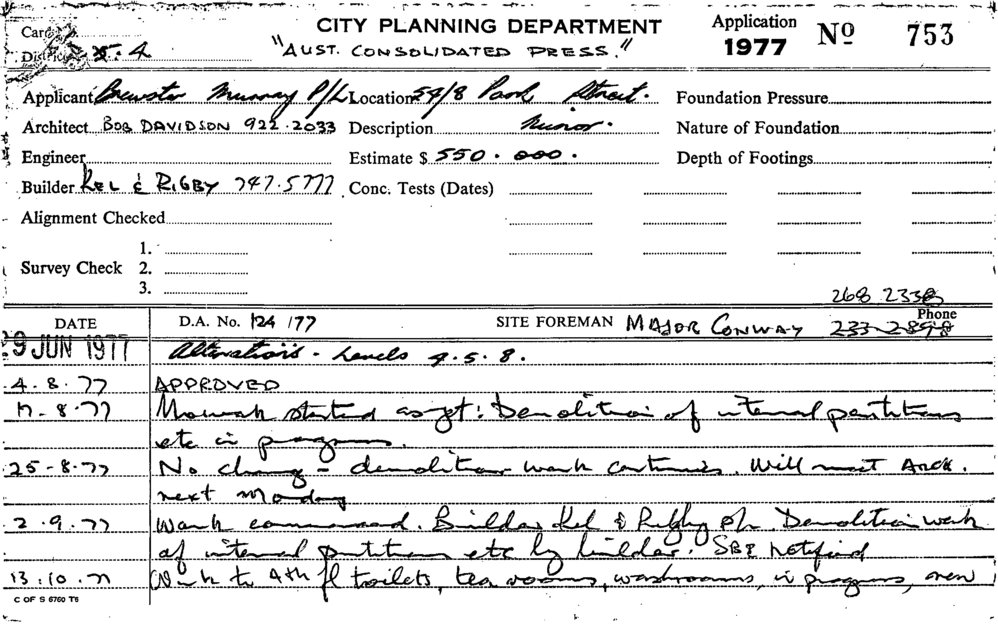 Card
District 5.4
CITY PLANNING DEPARTMENT
"AUST. CONSOLIDATED PRESS."
Application
1977 No 753
Applicant Brewster Murray P/L Location 54/8 Park Street. Foundation Pressure
Architect BOB DAVIDSON 922.2033 Description Minor. Nature of Foundation
Engineer Estimate $ 550.000. Depth of Footings
Builder KEL & RIGBY 747.5777 Conc. Tests (Dates)
Alignment Checked
1.
Survey Check 2.
3.
268 2338
DATE D.A. No. 124/77 SITE FOREMAN MAJOR CONWAY Phone 233-2898
29 JUN 1977 Alterations - Levels 4.5.8.
4.8.77 APPROVED
17-8.77 started as yet: Demolition of internal partitions
etc in progress.
25-8.77 No change - demolition work continues. Will meet Arch.
next Monday
2.9.77 Work commenced. Builder Kel & Rigby P/L Demolition work
of internal partitions etc by builder. SBI notified
13.10.77 Work to 4th fl toilets, tea rooms, washrooms, in progress, new
C OF S 6760 T6